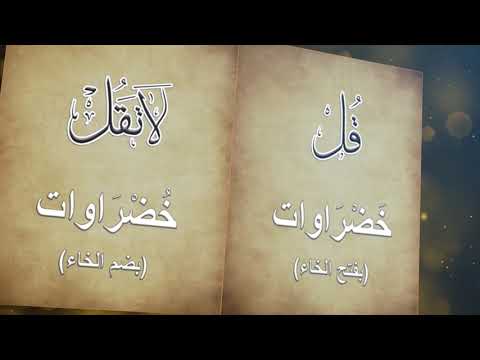 قُلْ
خَضْرَاوات
(بفتح الخاء)
لَا تَقُلْ
خُضْرَاوات
(بضم الخاء)